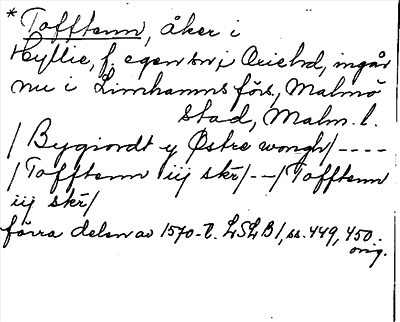 * Tofftenn, åker i
Hyllie, f. egen sn i Oxiehd, ingår
nu i Limhamns förs., Malmö
stad, Malm. l.
/ Bygiordt y Østre wongh/ - - - -
/ Tofftenn iij skr/ - - / Tofftenn
iij skr/
förra delen av 1570-t. LSLB 1, ss. 449, 450.
orig.